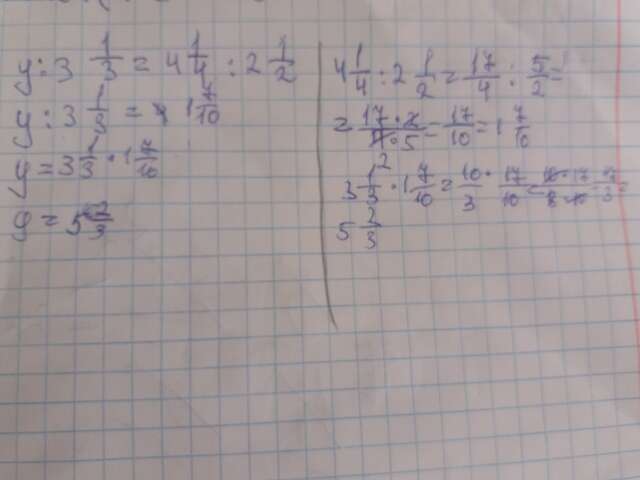 y : 3 1/3 = 4 1/4 : 2 1/2
y : 3 1/3 = 1 7/10
y = 3 1/3 · 1 7/10
y = 5 2/3
4 1/4 : 2 1/2 = 17/4 : 5/2 =
17 · 2 / 4 · 5 = 17/10 = 1 7/10
3 1/3 · 1 7/10 = 10/3 · 17/10 =
5 2/3